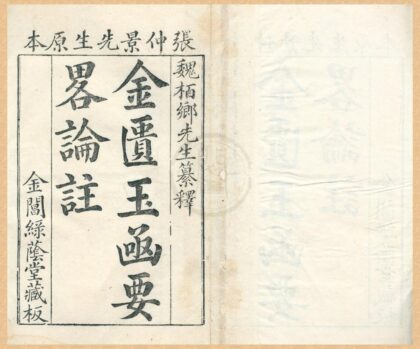 張仲景先生原本
魏栢鄉先生纂釋
金匱玉凾要
畧論註
金閶綠蔭堂藏板